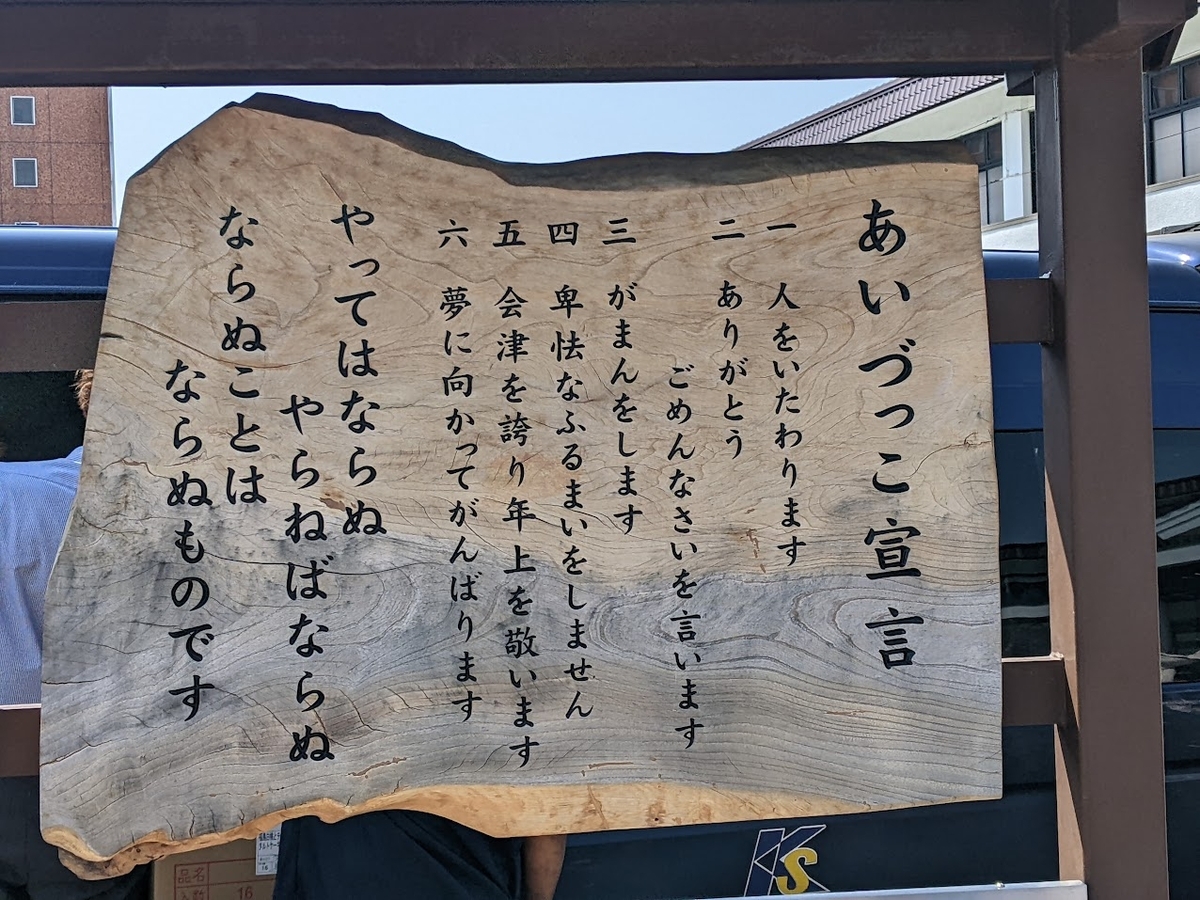 あいづっこ宣言
一 人をいたわります
二 ありがとう
ごめんなさいを言います
三 がまんをします
四 卑怯なふるまいをしません
五 会津を誇り年上を敬います
六 夢に向かってがんばります
やってはならぬ
やらねばならぬ
ならぬことは
ならぬものです
KS
品名
16